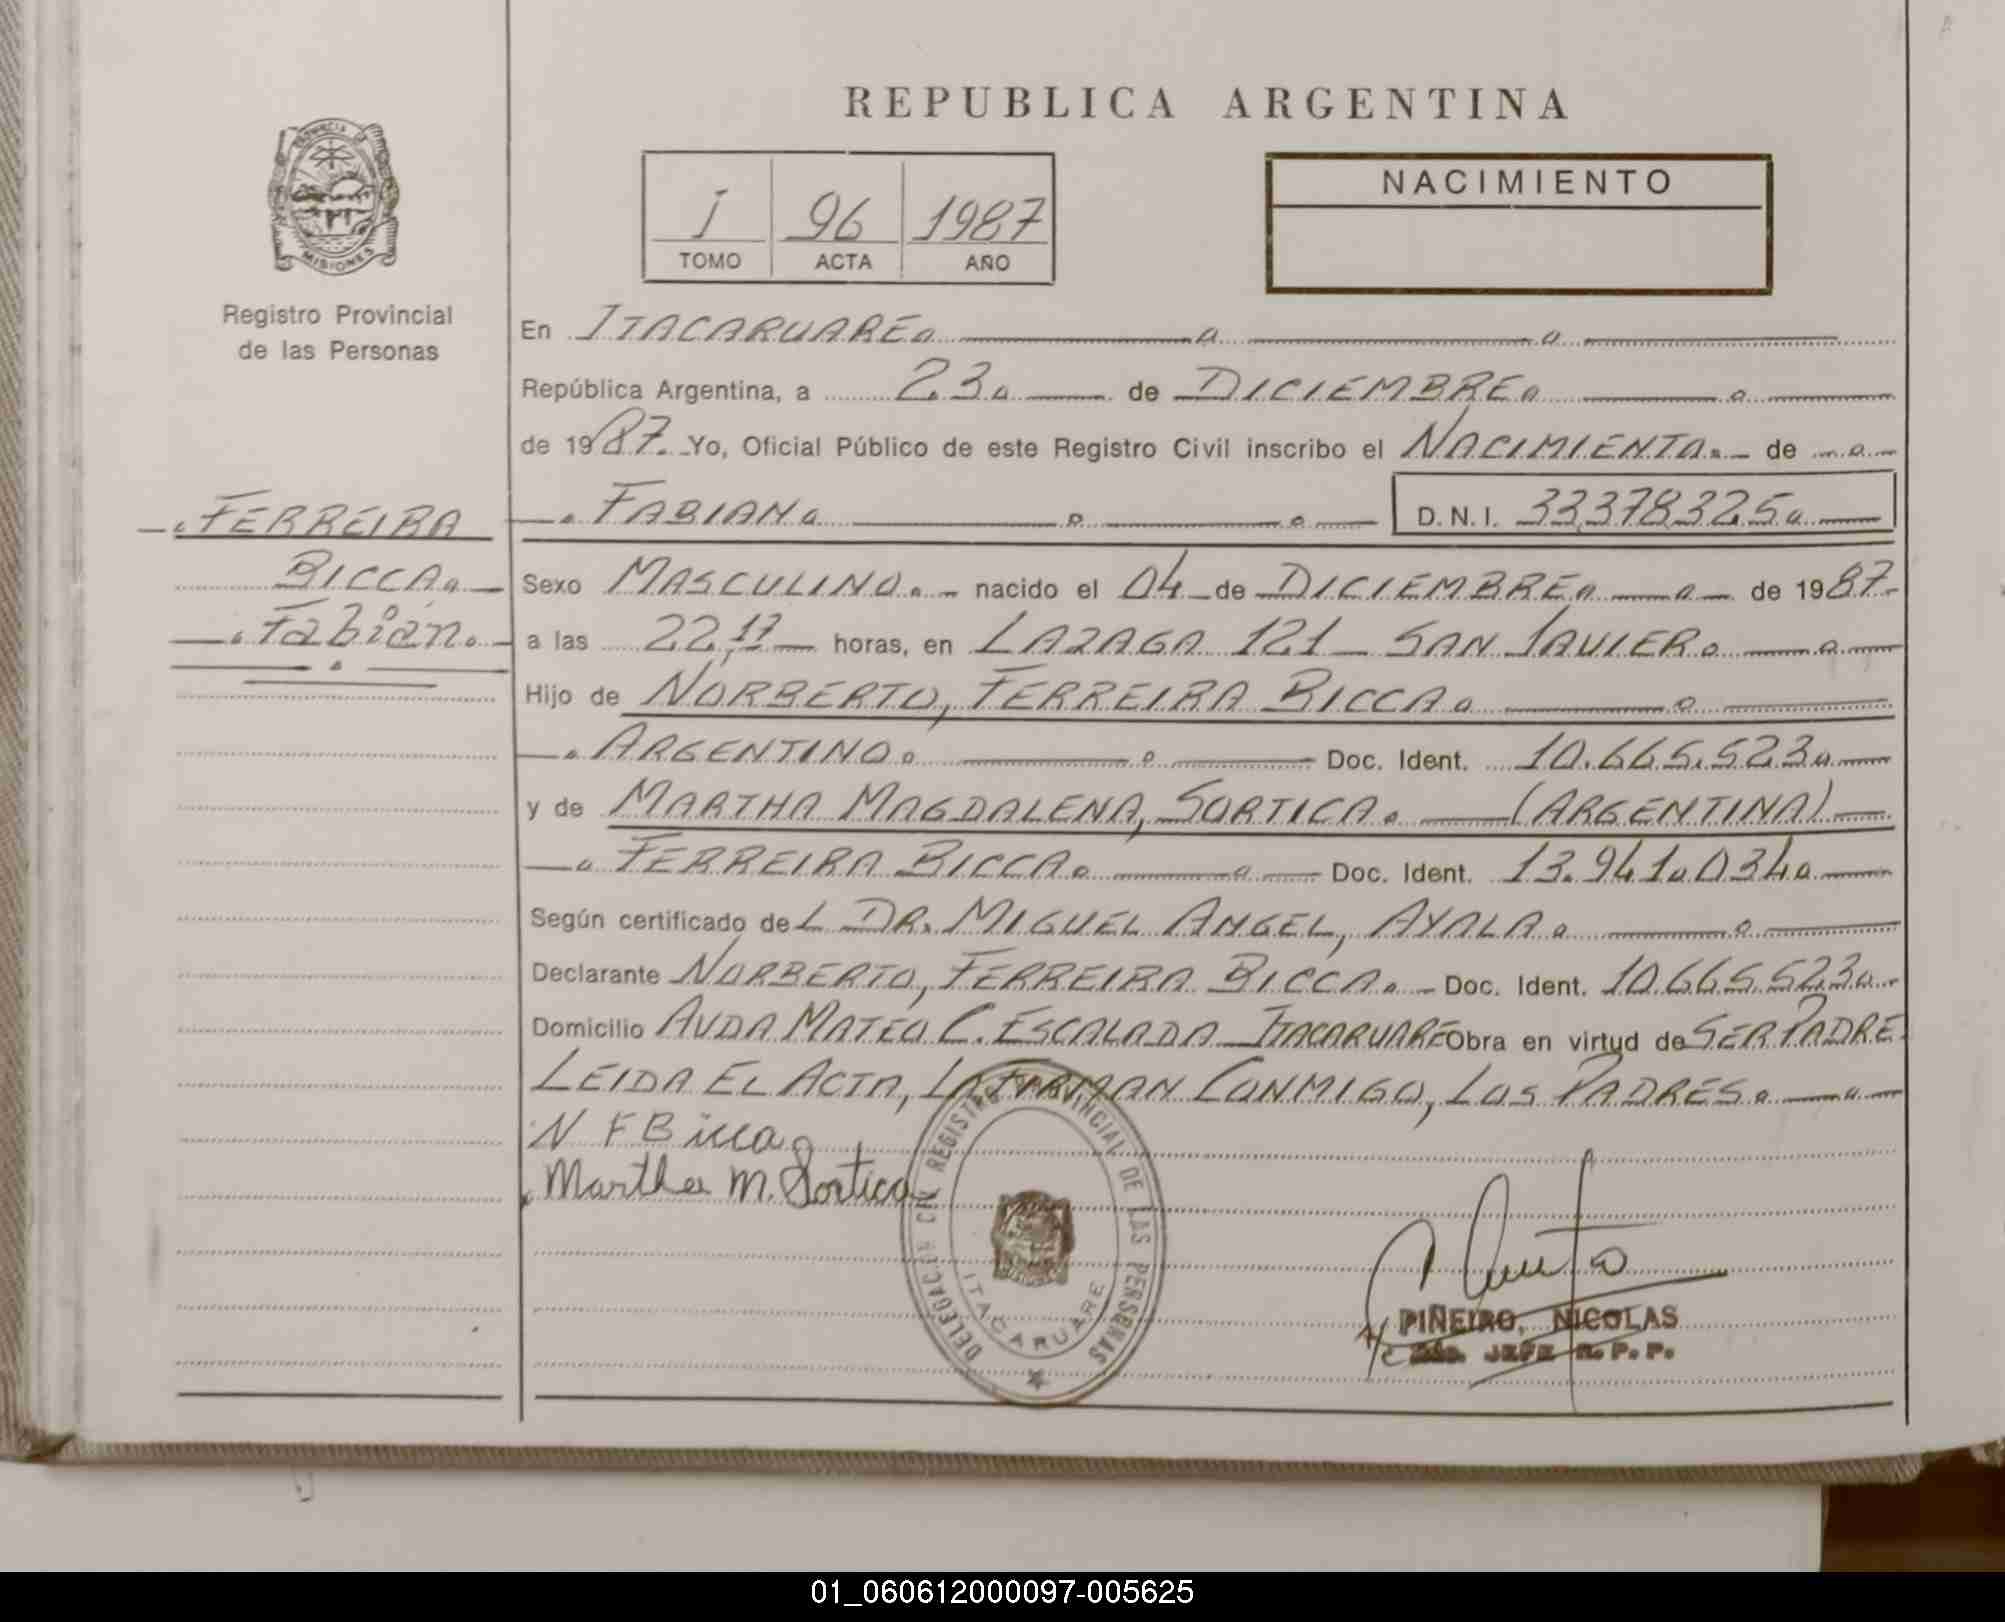 REPUBLICA ARGENTINA
PROVINCIA DE
MISIONES
Registro Provincial
de las Personas
1 96 1987
TOMO ACTA AÑO
NACIMIENTO
En ITACARUARE
República Argentina, a 23 de DICIEMBRE
de 1987. Yo, Oficial Público de este Registro Civil inscribo el NACIMIENTO de
FERREIRA
BICCA
Fabián
FABIAN D.N.I. 33378325
Sexo MASCULINO nacido el 04 de DICIEMBRE de 1987
a las 22,17 horas, en LAZAGA 121 - SAN JAVIER
Hijo de NORBERTO, FERREIRA BICCA
ARGENTINO Doc. Ident. 10.665.523
y de MARTHA MAGDALENA, SORTICA (ARGENTINA)
FERREIRA BICCA Doc. Ident. 13.941.034
Según certificado del DR. MIGUEL ANGEL, AYALA
Declarante NORBERTO, FERREIRA BICCA Doc. Ident. 10.665.523
Domicilio AVDA MATEO C. ESCALADA ITACARUARE Obra en virtud de SER PADRE
LEIDA EL ACTA, LA FIRMAN CONMIGO, LOS PADRES
N F Bicca
Martha M. Sortica
DELEGACION REGISTRO PROVINCIAL DE LAS PERSONAS
ITACARUARE
PIÑEIRO, NICOLAS
JEFE R.P.P.
01_060612000097-005625